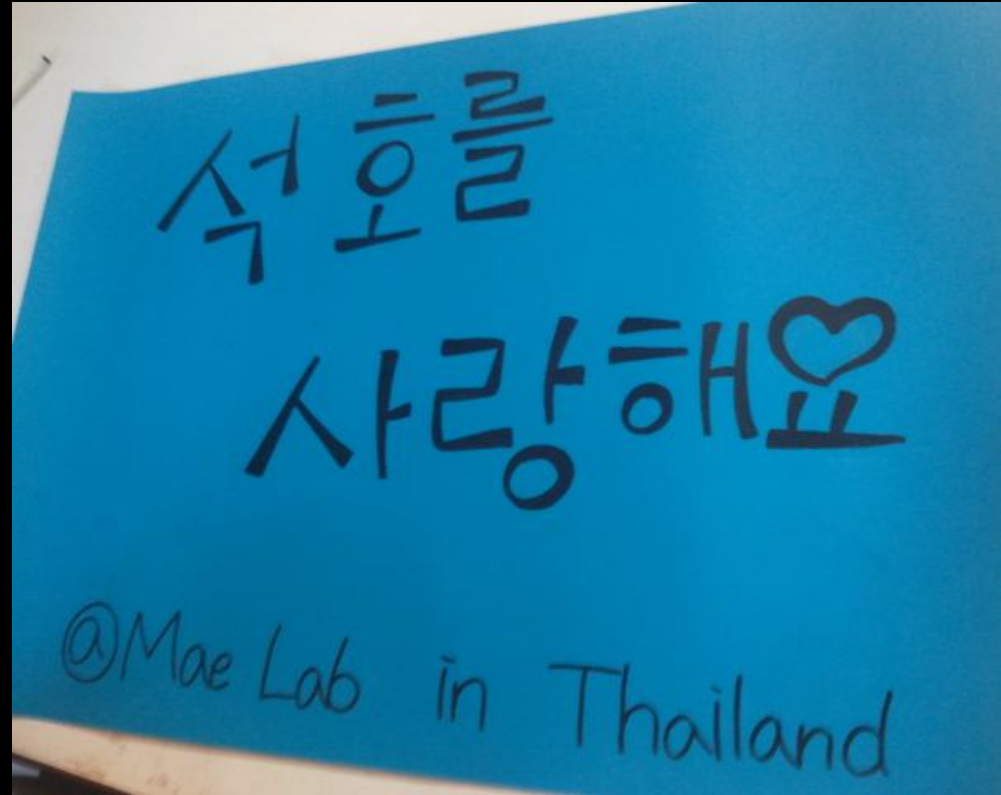 석호를
사랑해요
@Mae Lab in Thailand